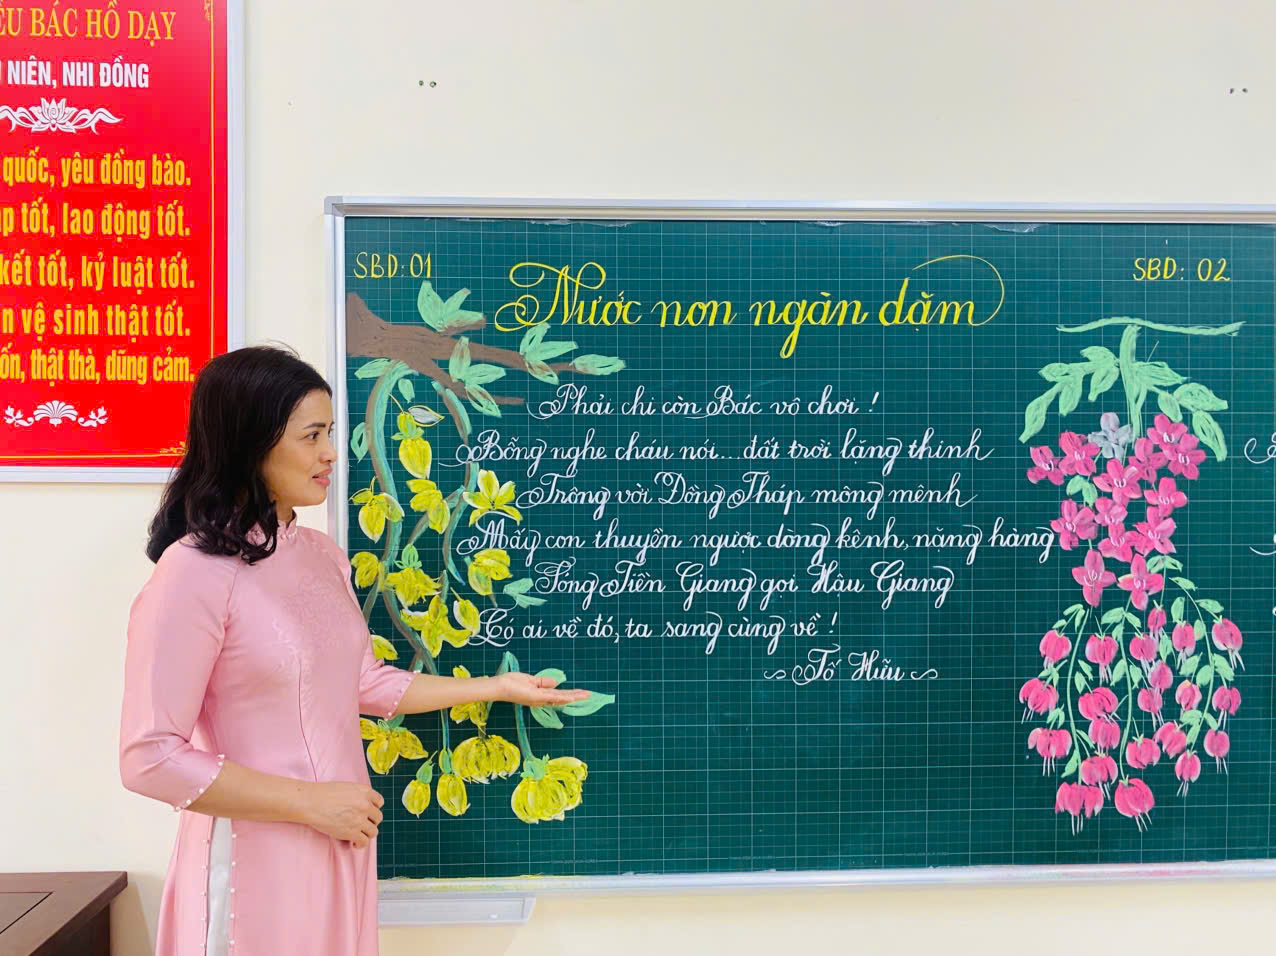 ỀU BÁC HỒ DẠY
NIÊN, NHI ĐỒNG
quốc, yêu đồng bào.
tốt, lao động tốt.
kết tốt, kỷ luật tốt.
n vệ sinh thật tốt.
ốn, thật thà, dũng cảm.
SBD: 01
Nước non ngàn dặm
Phải chi còn Bác vô chơi !
Bỗng nghe cháu nói... đất trời lặng thinh
Trông vời Đồng Tháp mông mênh
Mấy con thuyền ngược dòng kênh, nặng hàng
Sóng Tiền Giang gọi Hậu Giang
Có ai về đó, ta sang cùng về !
~ Tố Hữu ~
SBD: 02